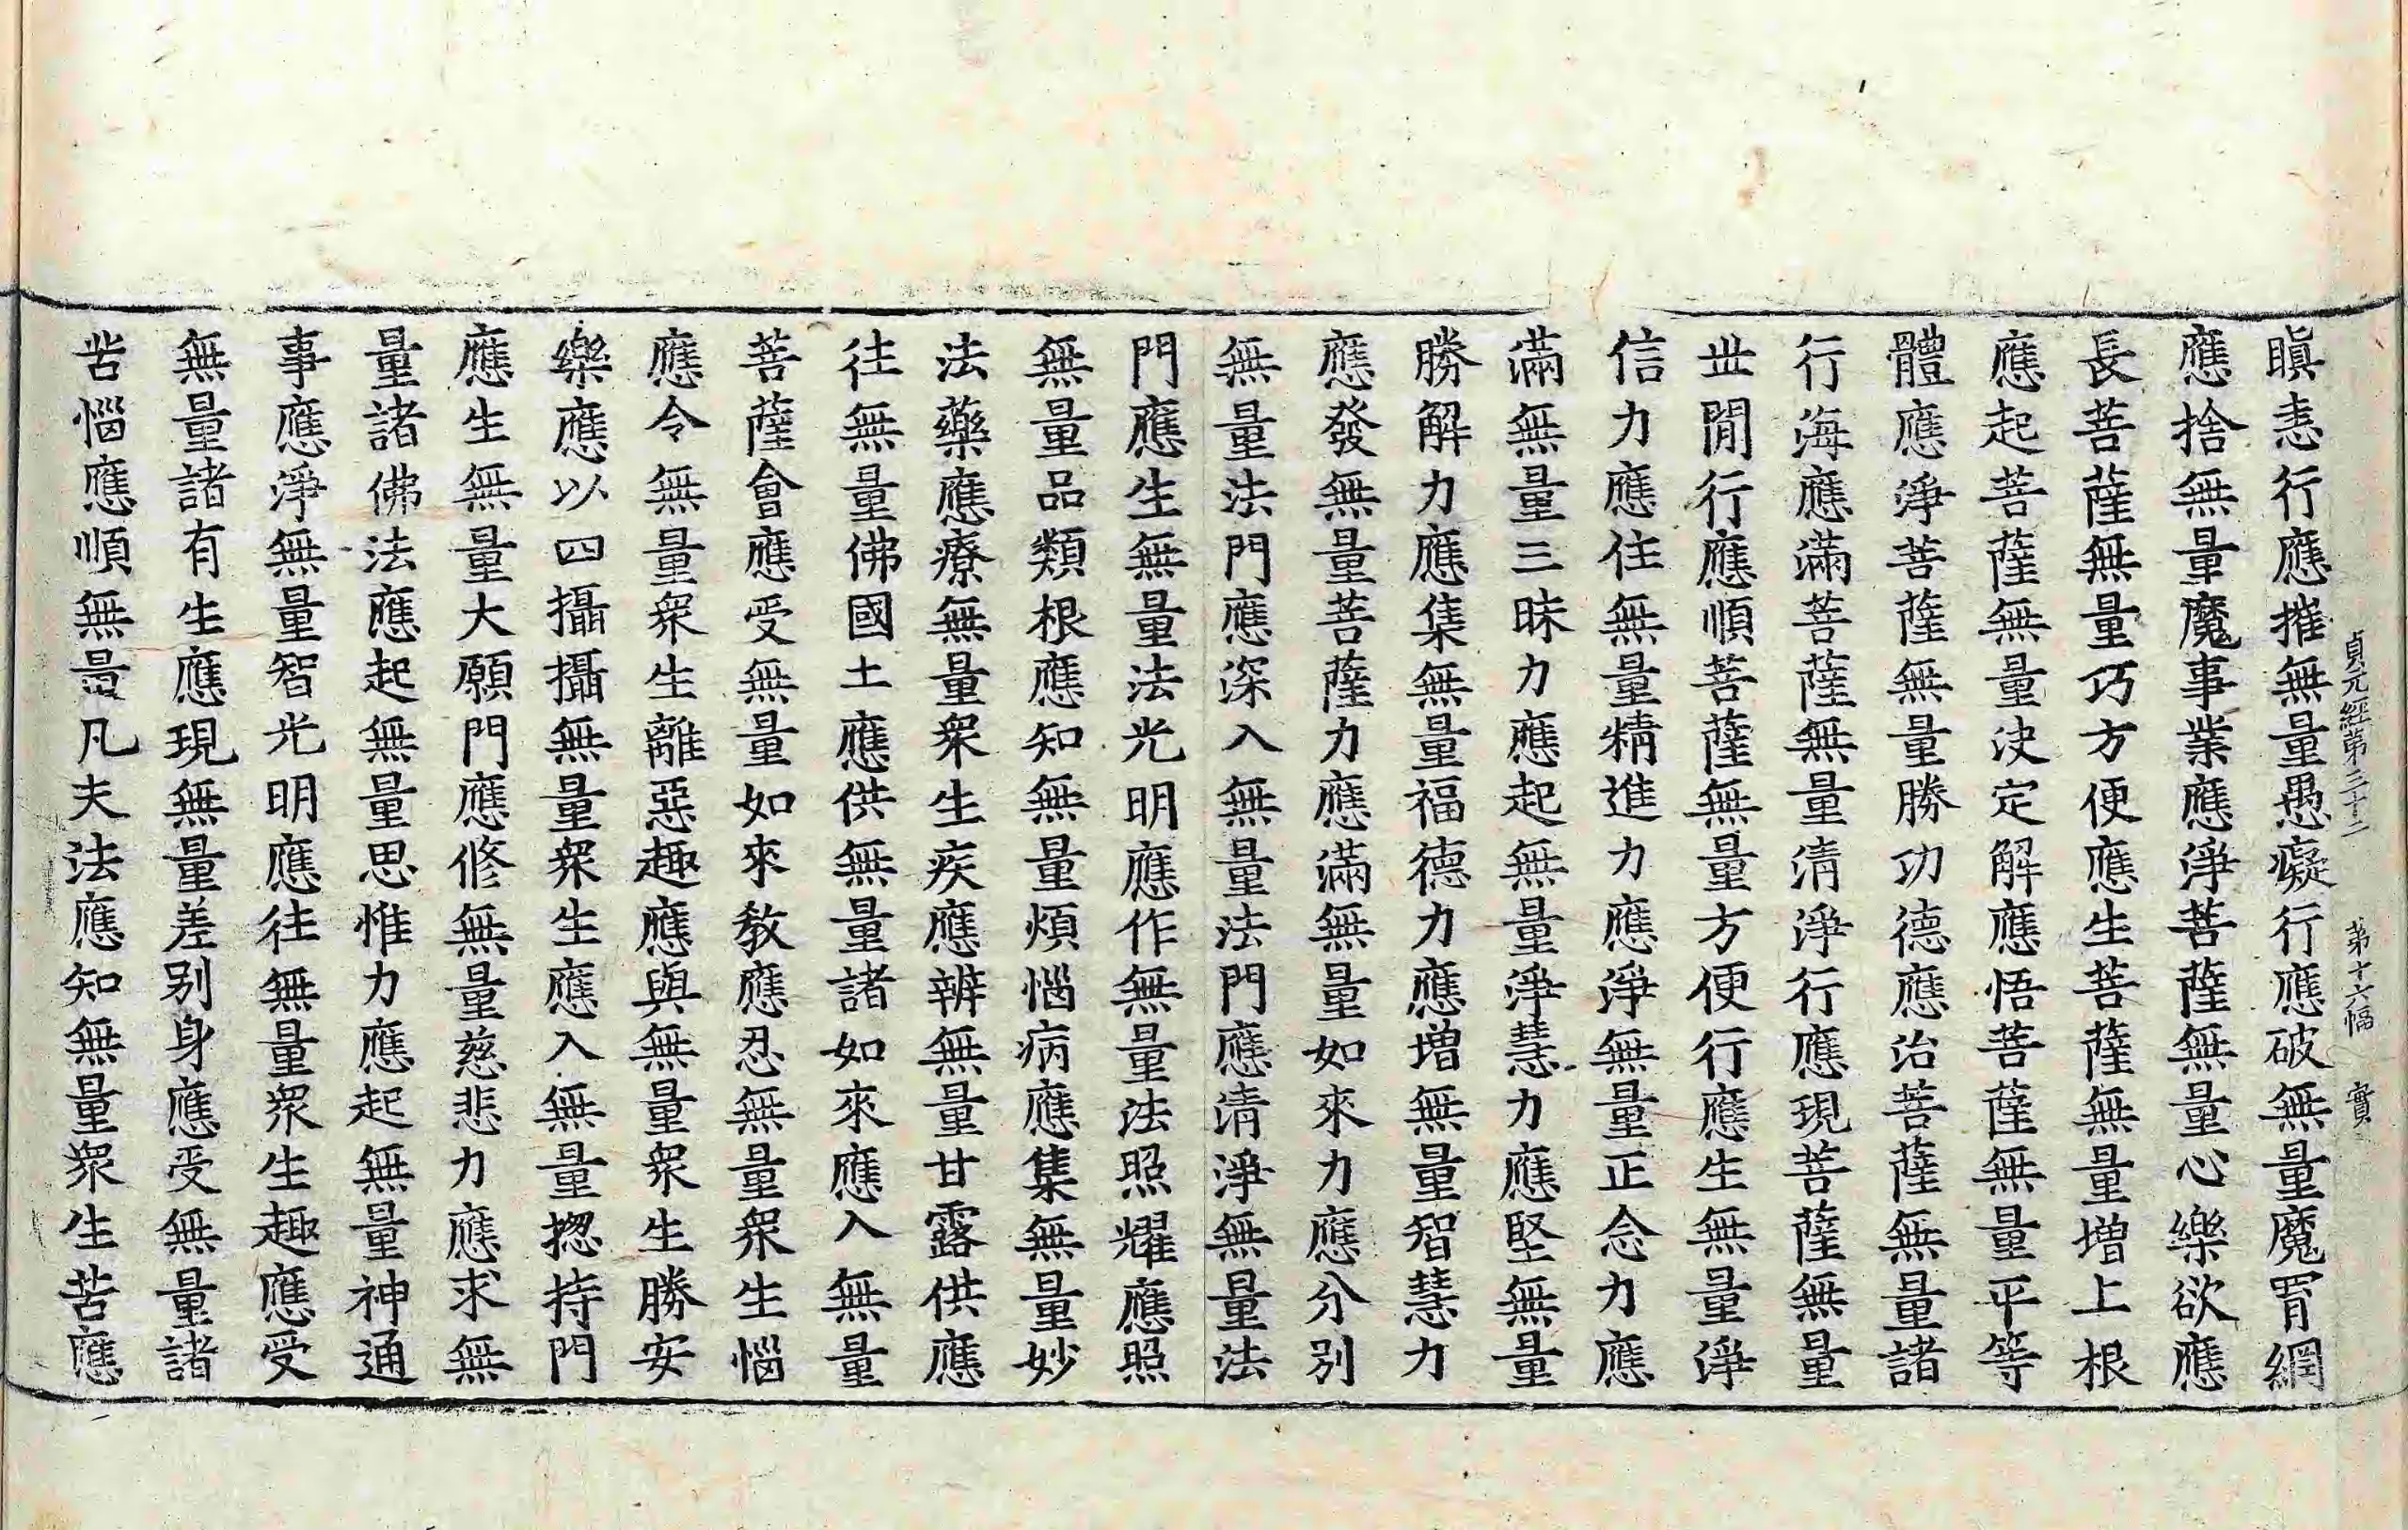 貞元經第三十二　第十六幅　實
瞋恚行應摧無量愚癡行應破無量魔罥網
應捨無量魔事業應淨菩薩無量心樂欲應
長菩薩無量巧方便應生菩薩無量增上根
應起菩薩無量决定解應悟菩薩無量平等
體應淨菩薩無量勝功德應治菩薩無量諸
行海應滿菩薩無量清淨行應現菩薩無量
丗閒行應順菩薩無量方便行應生無量淨
信力應住無量精進力應淨無量正念力應
滿無量三昧力應起無量淨慧力應堅無量
勝解力應集無量福德力應增無量智慧力
應發無量菩薩力應滿無量如來力應分別
無量法門應深入無量法門應清淨無量法
門應生無量法光明應作無量法照耀應照
無量品類根應知無量煩惱病應集無量妙
法藥應療無量衆生疾應辨無量甘露供應
往無量佛國土應供無量諸如來應入無量
菩薩會應受無量如來教應忍無量衆生惱
應令無量衆生離惡趣應與無量衆生勝安
樂應以四攝攝無量衆生應入無量揔持門
應生無量大願門應修無量慈悲力應求無
量諸佛法應起無量思惟力應起無量神通
事應淨無量智光明應往無量衆生趣應受
無量諸有生應現無量差别身應受無量諸
苦惱應順無量凡夫法應知無量衆生苦應